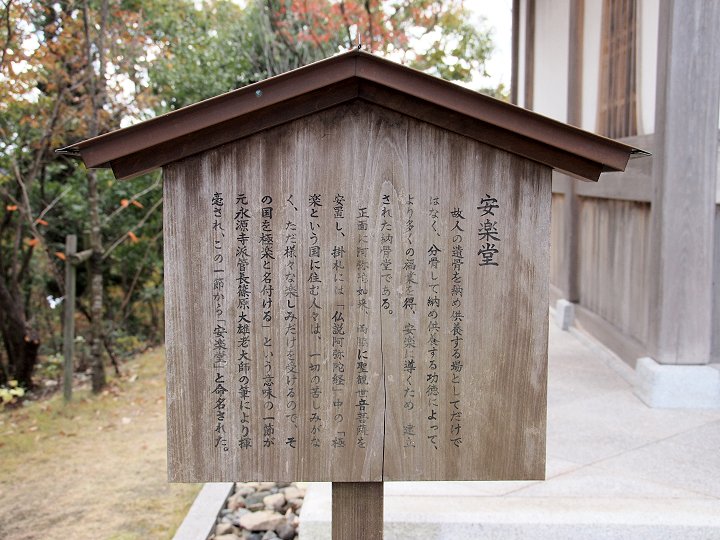 安楽堂
故人の遺骨を納め供養する場としてだけで
はなく、分骨して納め供養する功徳によって、
より多くの福楽を得、安楽に導くため建立
された納骨堂である。
正面に阿弥陀如来、両脇に聖観世音菩薩を
安置し、掛札には「仏説阿弥陀経」中の「極
楽という国に住む人々は、一切の苦しみがな
く、ただ様々な楽しみだけを受けるので、そ
の国を極楽と名付ける」という意味の一節が
元永源寺派管長篠原大雄老大師の筆により揮
毫され、この一節から「安楽堂」と命名された。